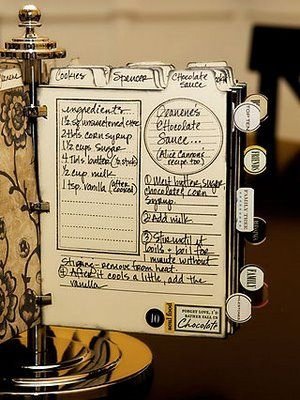 Cookies
Spencer
Chocolate
sauce
ingredients...
1 ½ sq unsweetened choc
2 tbls corn syrup
1 ½ cups sugar
4 Tbls butter (½ stick)
½ cup milk
1 tsp. vanilla (after cooked)
Deanene's
Chocolate
Sauce...
(Alice Cannons
recipe too)
① Melt butter, sugar,
chocolate & corn
syrup.
② Add milk
③ Stir until it
boils + boil for
minute without
stirring - remove from heat.
④ After it cools a little, add the
vanilla
10
soul food
FORGET LOVE, I'D
RATHER FALL IN
Chocolate
TOP TEN
FRIENDS
FAMILY TREE
FAMILY